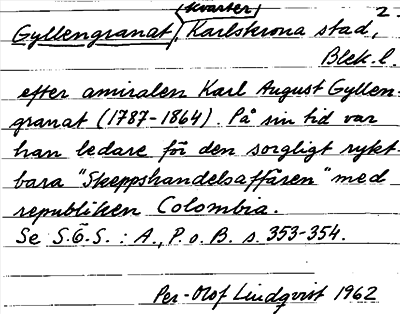 (kvarter) 2.
Gyllengranat, Karlskrona stad,
Blek. l.
efter amiralen Karl August Gyllen-
granat (1787-1864). På sin tid var
han ledare för den sorgligt rykt-
bara "Skeppshandelsaffären" med
republiken Colombia.
Se S.G.S.: A., P. o. B. s. 353-354.
Per-Olof Lindqvist 1962